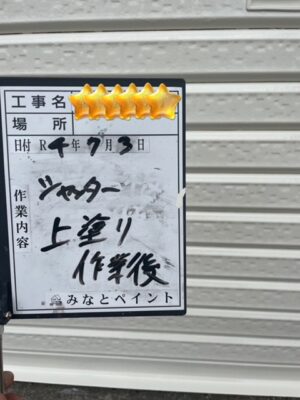 工事名
場所
日付 R4年7月3日
作業内容
シャッター
上塗り
作業後
みなとペイント